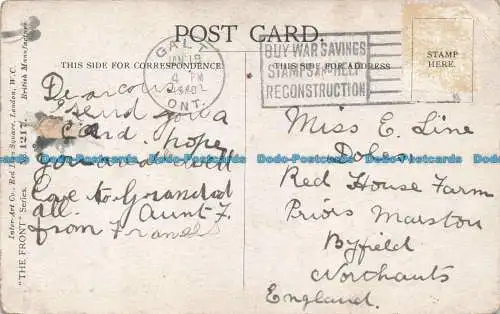 POST CARD
THIS SIDE FOR CORRESPONDENCE.
THIS SIDE FOR ADDRESS
STAMP
HERE.
GALT
JAN 19
4 PM
ONT.
BUY WAR SAVINGS
STAMPS AND HELP
RECONSTRUCTION
Inter-Art Co., Red Lion Square, London, W.C.
"THE FRONT" Series. 1217.
British Manufacture.
Dear
send you a
card hope
you are well
Love to Grandad
all. Aunt F.
from Frances
Miss E. Line
Red House Farm
Priors Marston
Byfield
Northants
England.
Dodo-Postcards Dodo-Postcards Dodo-Postcards Dodo-Postcards Dodo-Postcards